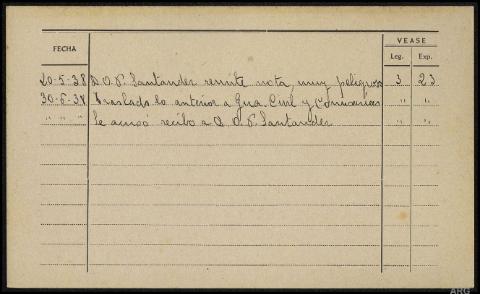 FECHA VEASE
Leg. Exp.
20-5-38 D.O.P. Santander remite nota, muy peligroso 3 23
30-5-38 Traslado lo anterior a Gua. Civil y Comisarias " "
" " " Se acusó recibo a D.O.P. Santander " "
ARG